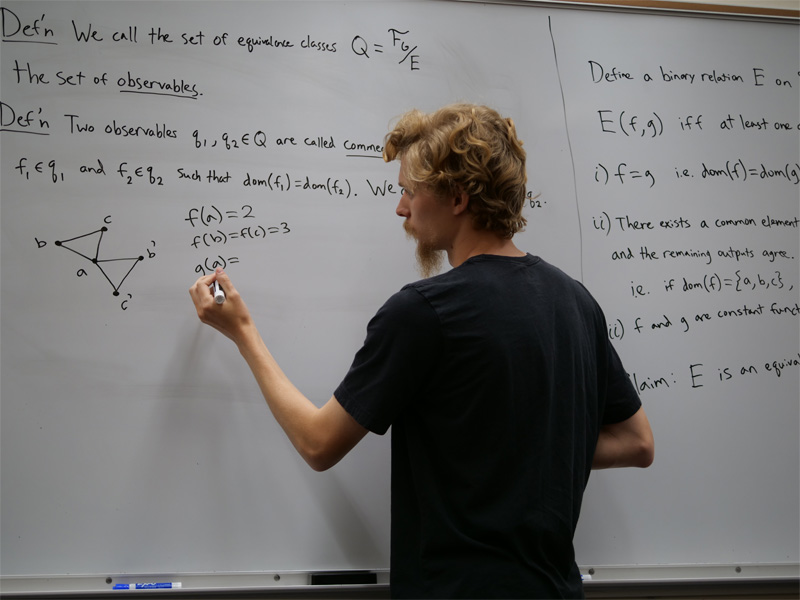 Def'n We call the set of equivalence classes Q = F_G/E
the set of observables.
Def'n Two observables q₁, q₂ ∈ Q are called
f₁ ∈ q₁ and f₂ ∈ q₂ such that dom(f₁) = dom(f₂). We
q₂.
c
b
a
b'
c'
f(a) = 2
f(b) = f(c) = 3
g(a) =
Define a binary relation E on
E(f,g) iff at least one
i) f = g i.e. dom(f) = dom(g)
ii) There exists a common element
and the remaining outputs agree.
i.e. if dom(f) = {a,b,c},
ii) f and g are constant
E is an